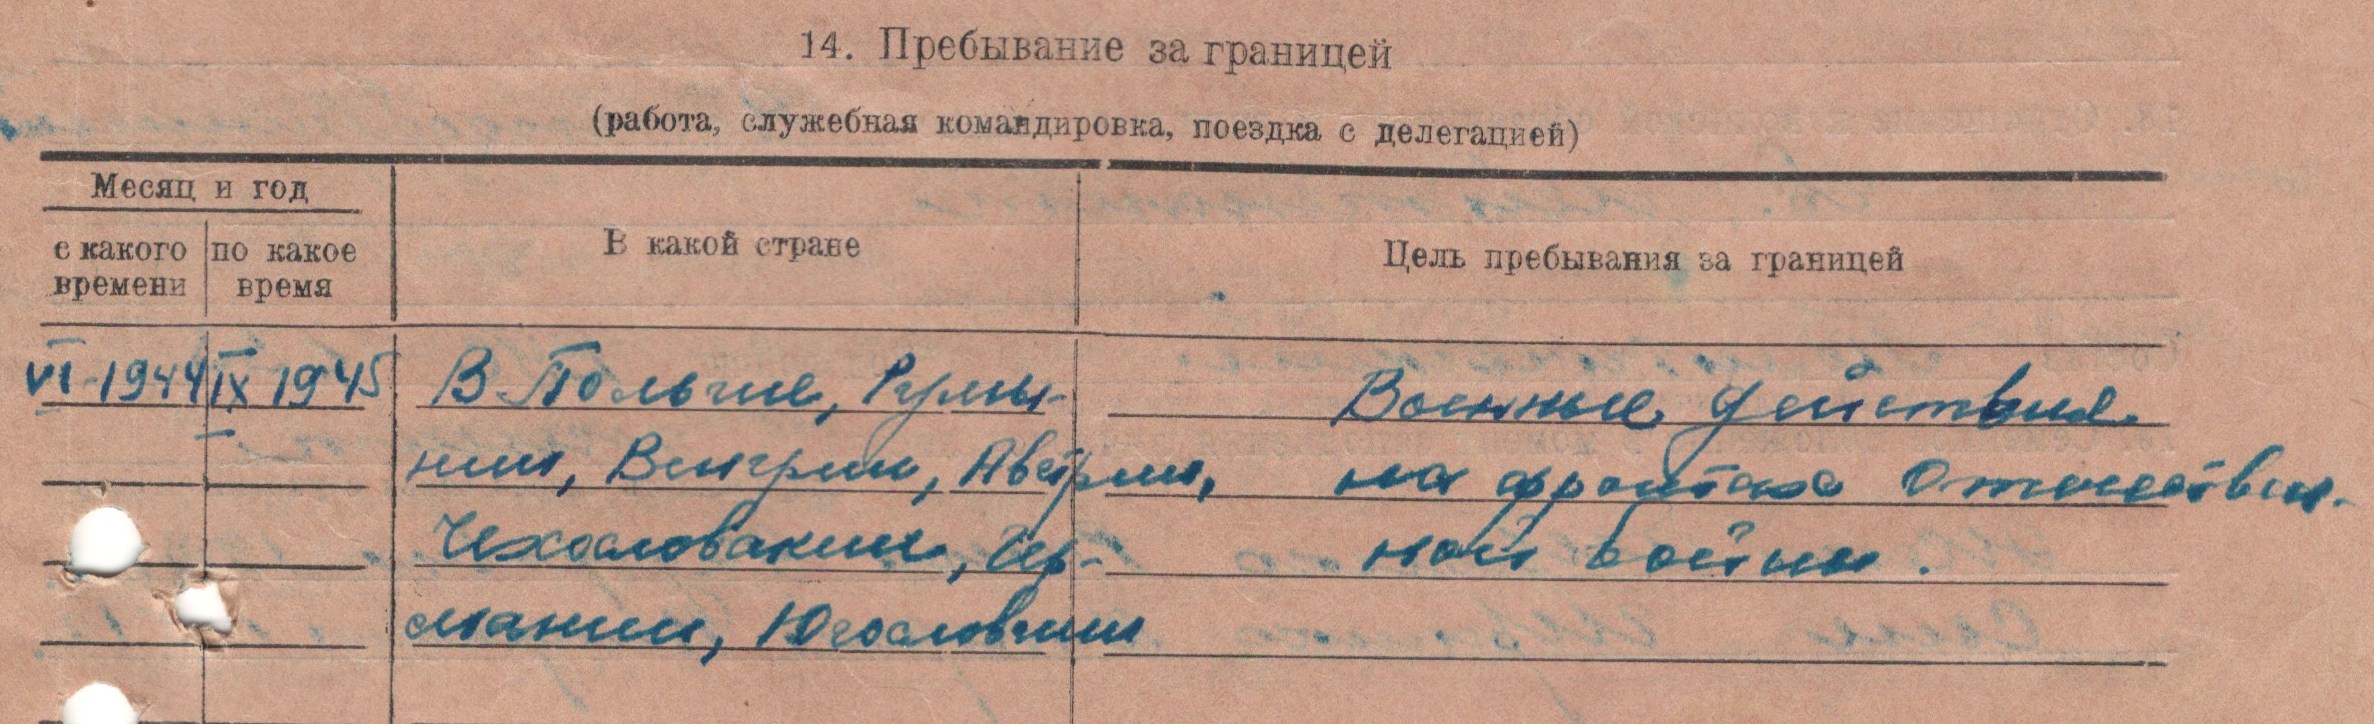 14. Пребывание за границей
(работа, служебная командировка, поездка с делегацией)
Месяц и год
с какого времени
по какое время
В какой стране
Цель пребывания за границей
VI-1944 IX 1945 В Польше, Румы- Военные действия
нии, Венгрии, Австрии, на фронтах Отечествен-
Чехословакии, Гер- ной войны.
мании, Югославии